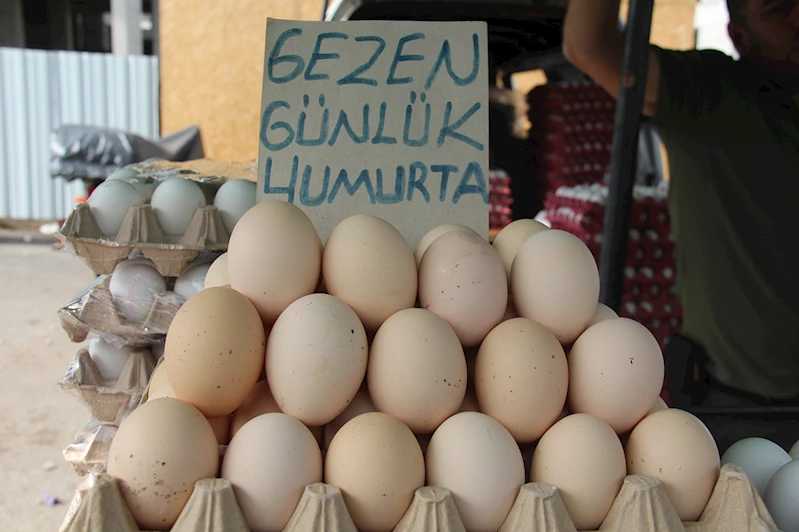 GEZEN
GÜNLÜK
YUMURTA